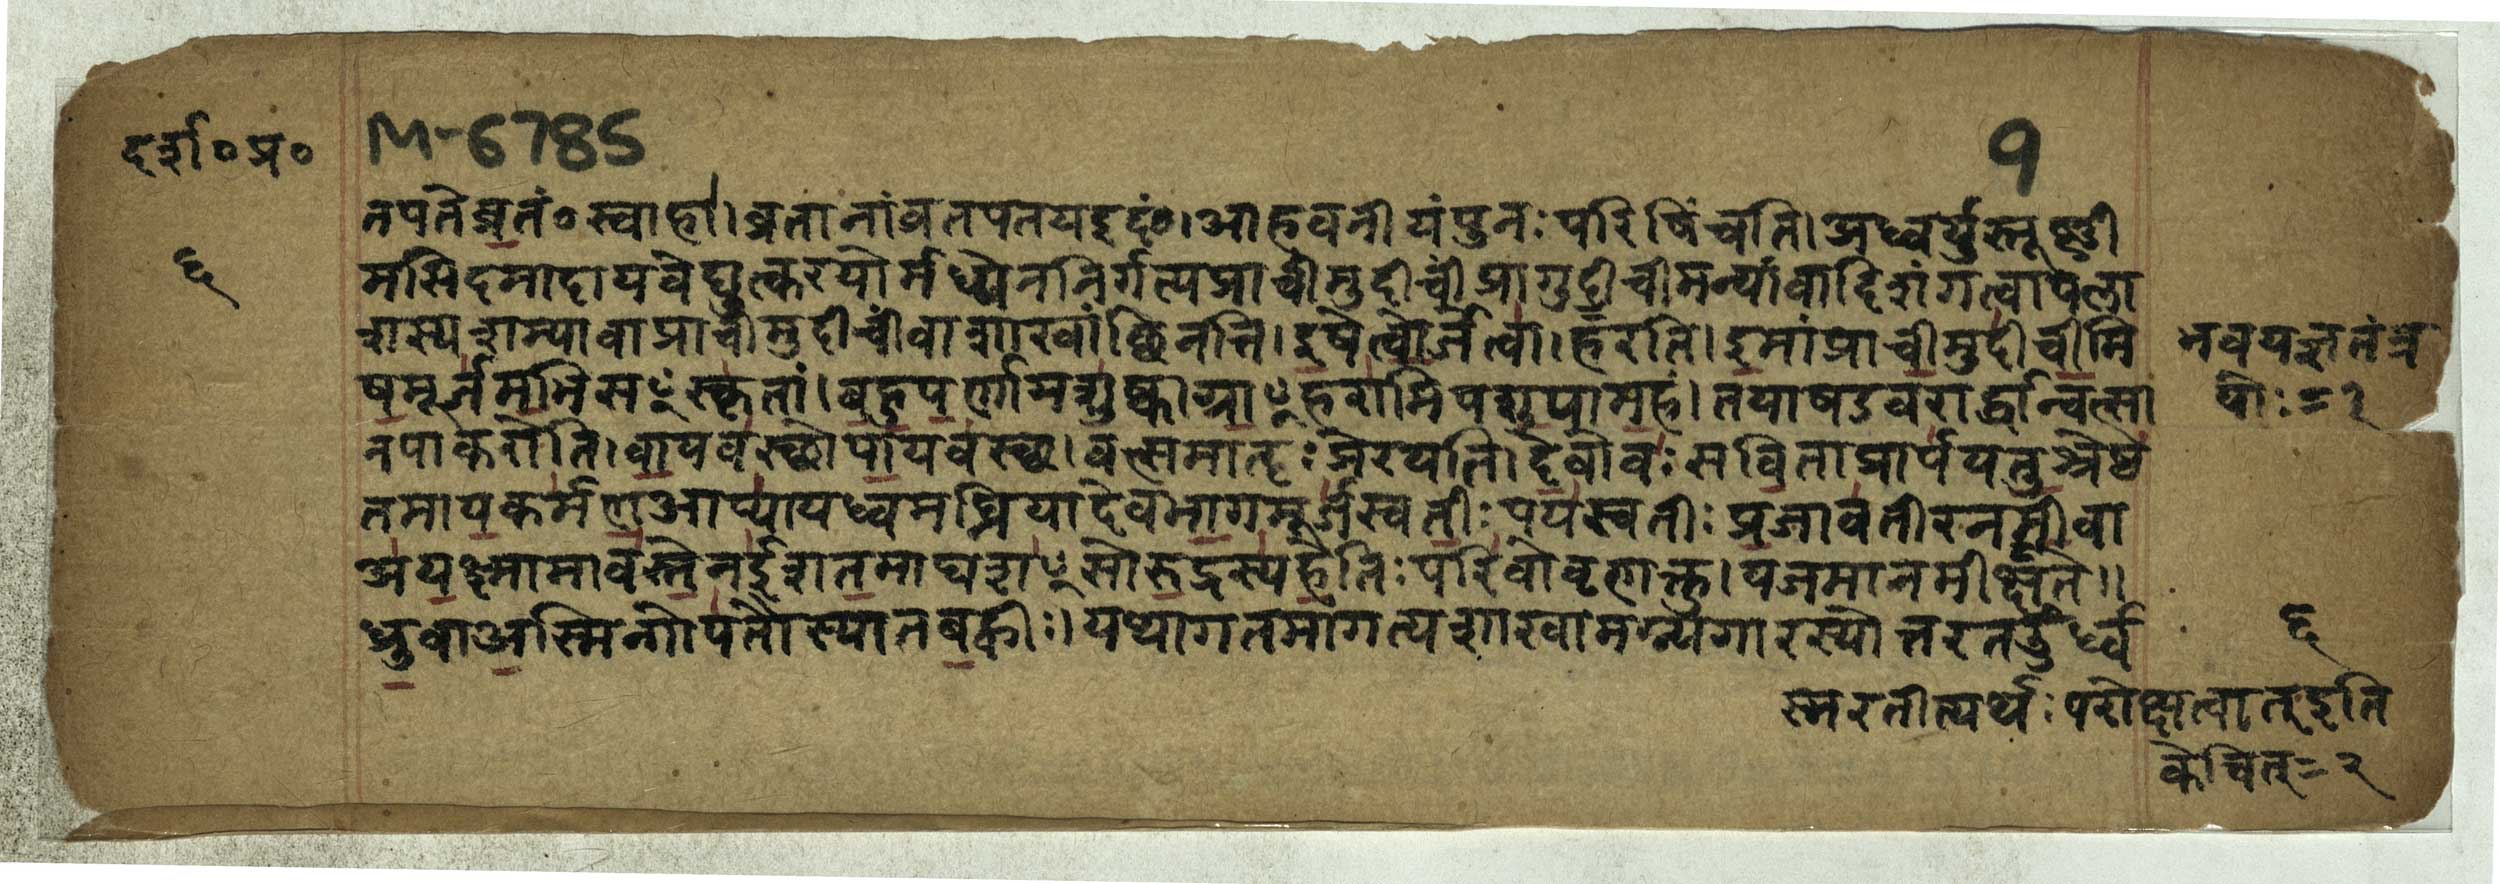 दर्श॰प्र॰
M-6785
१
तपतेव्रतं॰स्वाहा।व्रतानांव्रतपतयइदं॰।आहवनीयंपुनःपरिषिंचति।अध्वर्युस्तूष्णी
६
मसिदमादायवेद्युत्करयोर्मध्येननिर्गत्यप्राचीमुदीचींप्रागुदीचीमन्यांवादिशंगत्वापला
शस्यशम्यावाप्राचीमुदीचींवाशाखांछिनत्ति।इषेत्वोर्जेत्वा।हरति।इमांप्राचीमुदीचीमि
नवयज्ञतंत्र
षमूर्जमभिसꣳस्कृतां।बहुपर्णामशुष्काग्राꣳहरामिपशुपामहं।तयाषडवरार्द्ध्यान्वत्सा
योः=२
नपाकरोति।वायवस्छोपायवस्छ।वत्समातॄःप्रेरयति।देवोवःसविताप्रार्पयतुश्रेष्ठ
तमायकर्मणआप्यायध्वमघ्नियादेवभागमूर्जस्वतीःपयस्वतीःप्रजावतीरनमीवा
अयक्ष्मामावस्तेनईशतमाघशꣳसोरुद्रस्यहेतिःपरिवोवृणक्तु।यजमानमीक्षते॥
ध्रुवाअस्मिन्गोपतौस्यातबह्वीः।यथागतमागत्यशाखामग्न्यगारस्योत्तरतऊर्ध्व
६
स्मरतीत्यर्थःपरोक्षत्वात्इति
केचित्=२